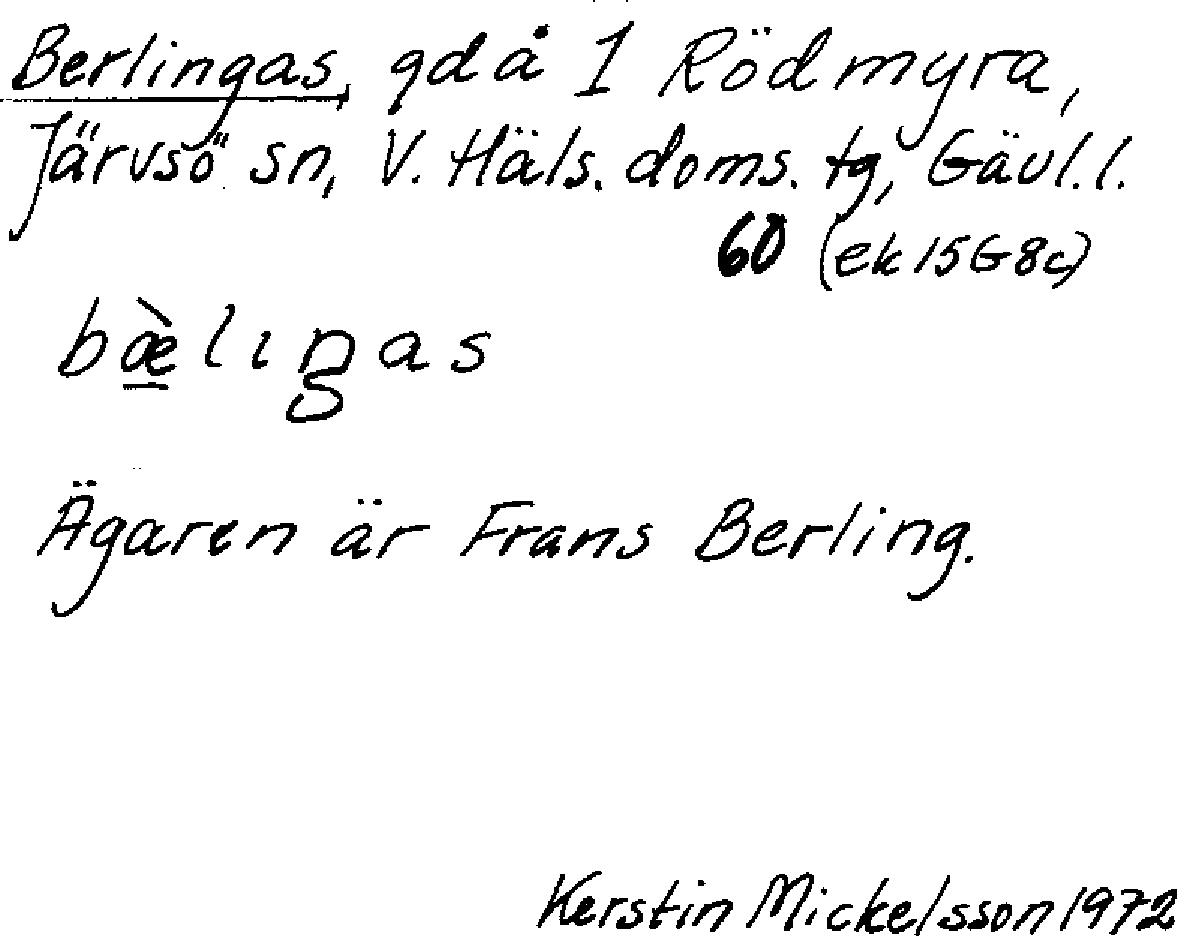 Berlingas, gd å 1 Rödmyra,
Järvsö sn, V. Häls. doms. tg, Gävl. l.
60 (ek 15G8c)
bæ̠̀lıŋas
Ägaren är Frans Berling.
Kerstin Mickelsson 1972